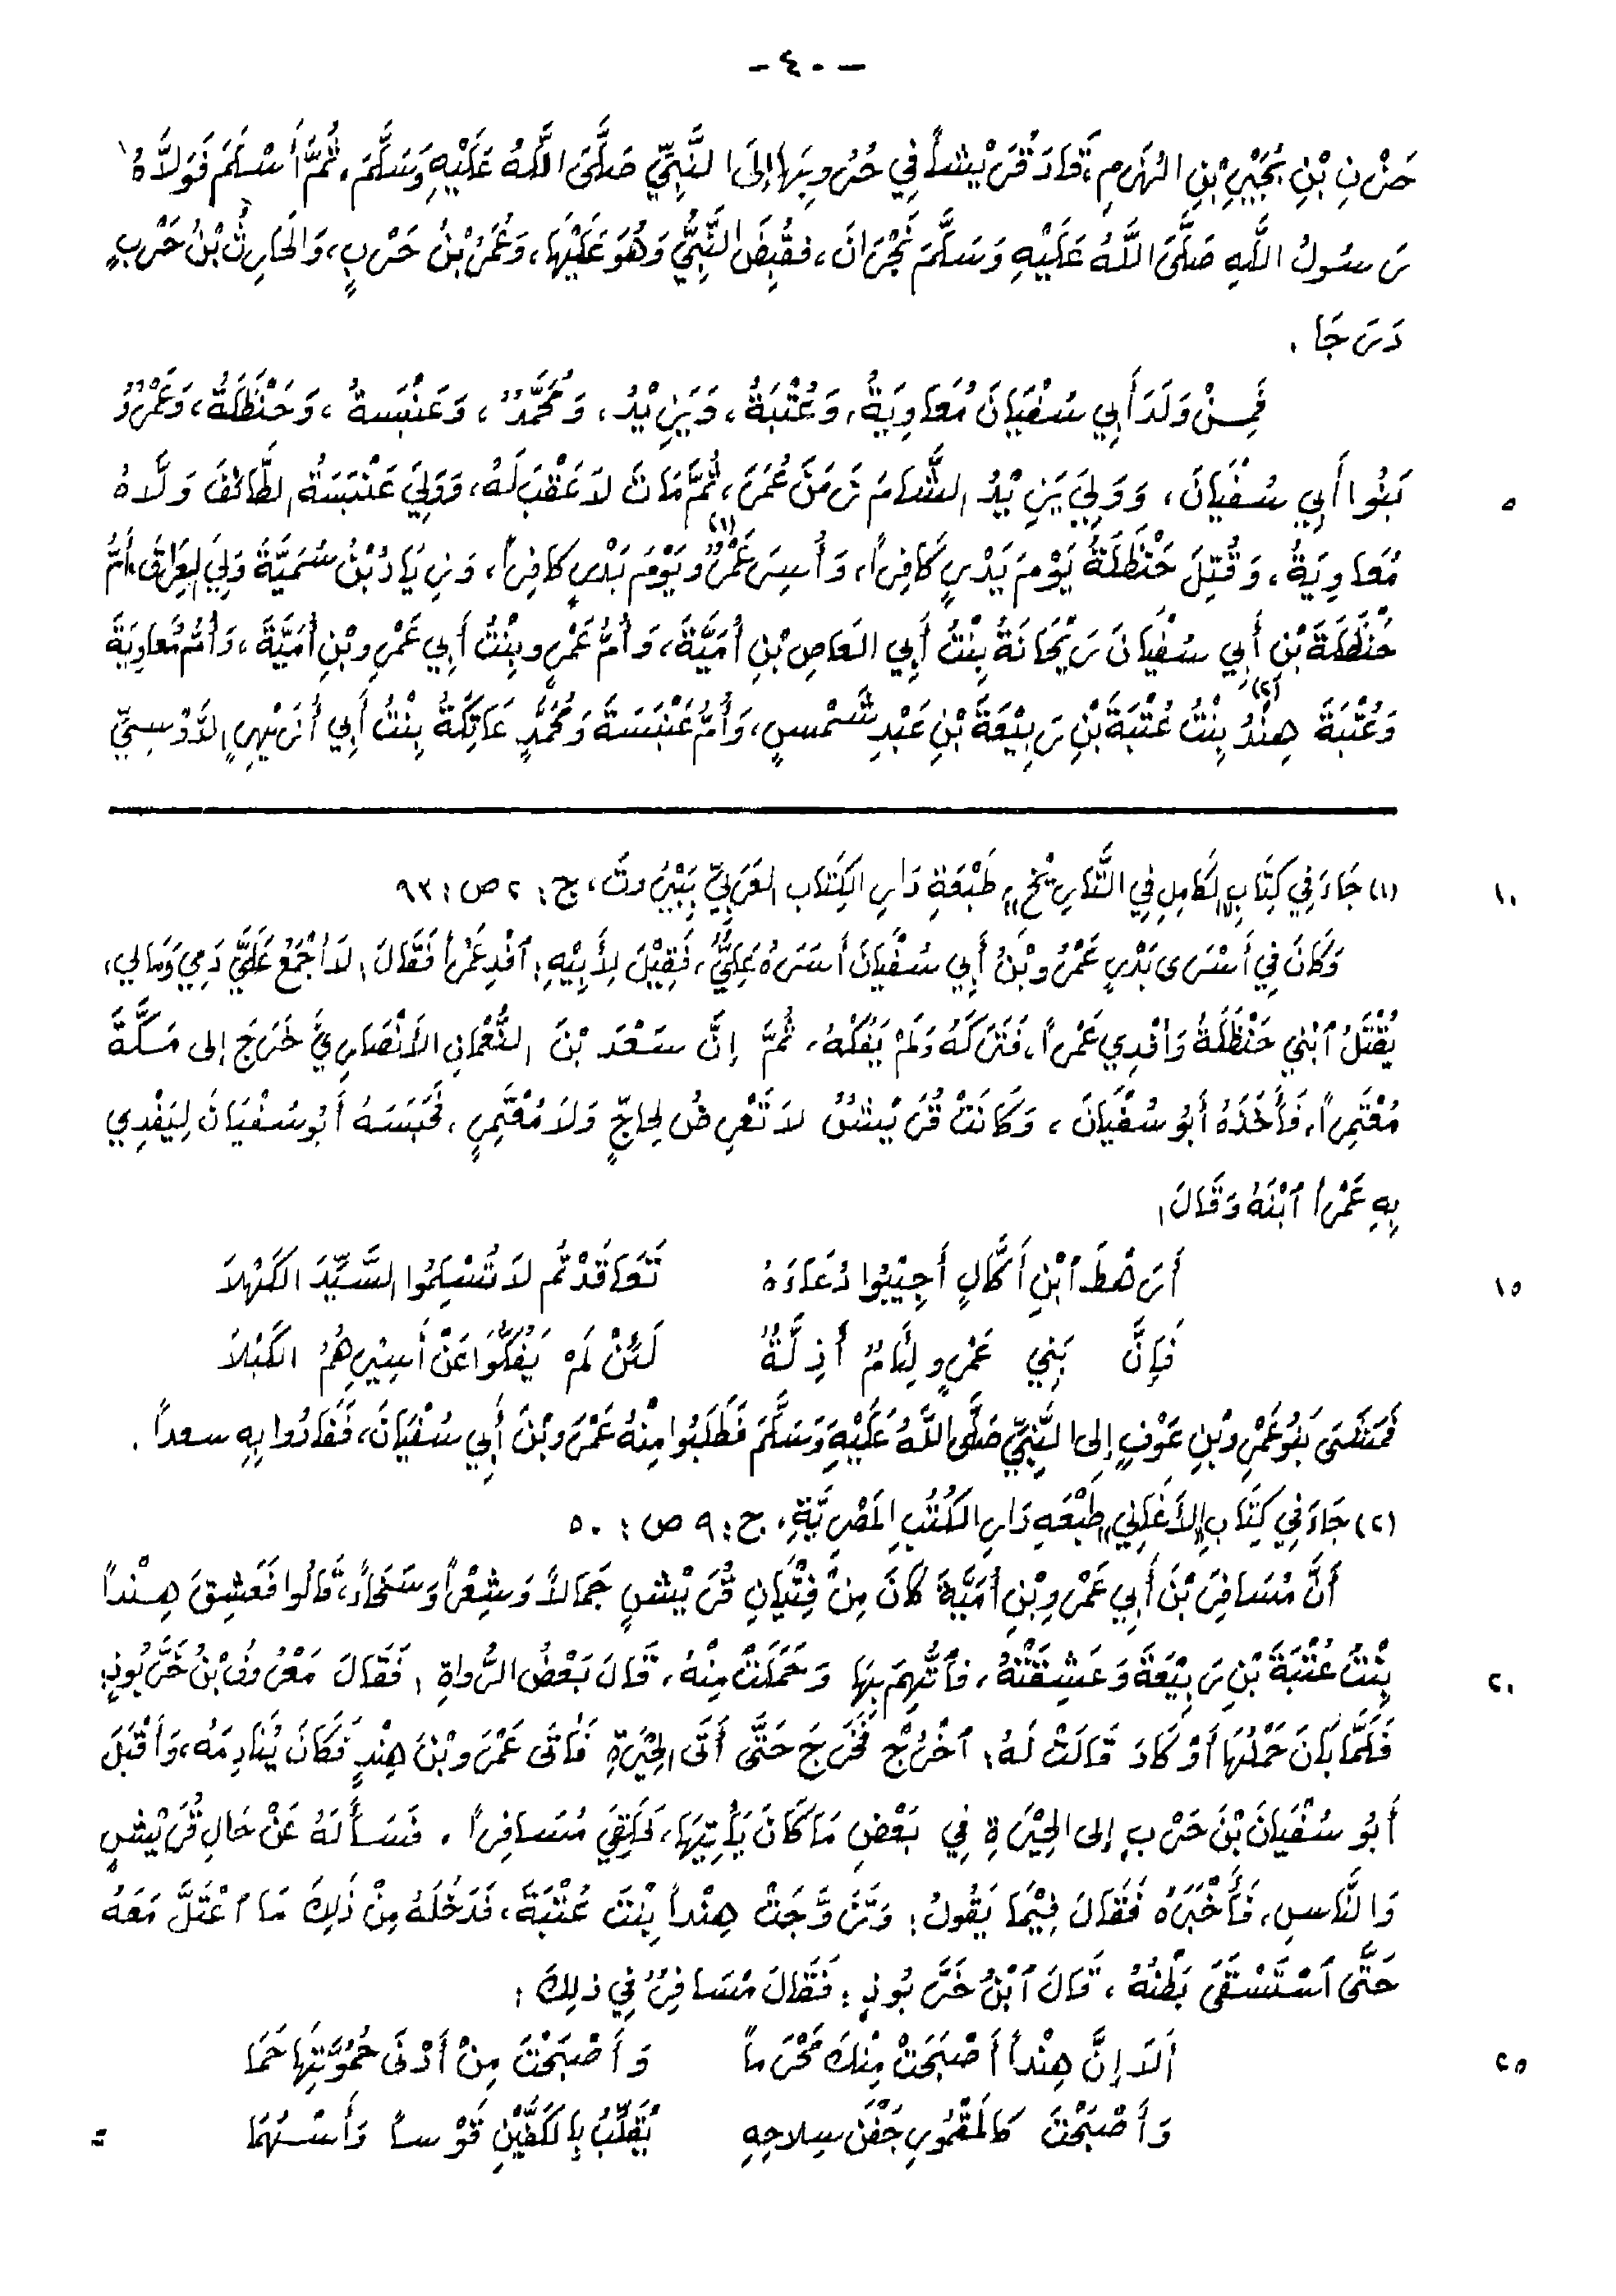 - ٤٠ -
حَزْنِ بْنِ بُجَيْرِ بْنِ الهُزَمِ، قَادَ قُرَيْشاً فِي حُرُوبِهَا إِلَى النَّبِيِّ صَلَّى اللَّهُ عَلَيْهِ وَسَلَّمَ، ثُمَّ أَسْلَمَ فَوَلَّاهُ
رَسُولُ اللَّهِ صَلَّى اللَّهُ عَلَيْهِ وَسَلَّمَ نَجْرَانَ، فَقُبِضَ النَّبِيُّ وَهُوَ عَلَيْهَا، وَعُمَرُ بْنُ حَرْبٍ، وَالحَارِثُ بْنُ حَرْبٍ
دَرَجَا .
فَمِنْ وَلَدِ أَبِي سُفْيَانَ مُعَاوِيَةُ، وَعُتْبَةُ، وَيَزِيْدُ، وَمُحَمَّدٌ، وَعَنْبَسَةُ، وَحَنْظَلَةُ، وَعَمْرٌو
بَنُوا أَبِي سُفْيَانَ، وَوَلِيَ يَزِيْدُ الشَّامَ زَمَنَ عُمَرَ، ثُمَّ مَاتَ لَا عَقْبَ لَهُ، وَوَلِيَ عَنْبَسَةُ الطَّائِفَ وَلَّاهُ ٥
مُعَاوِيَةُ، وَقُتِلَ حَنْظَلَةُ يَوْمَ بَدْرٍ كَافِراً، وَأُسِرَ عَمْرٌو (١) يَوْمَ بَدْرٍ كَافِراً، وَزِيَادُ بْنُ سُمَيَّةَ وَلِيَ العِرَاقَ، أُمُّ
حَنْظَلَةَ بْنِ أَبِي سُفْيَانَ رَيْحَانَةُ بِنْتُ أَبِي العَاصِ بْنِ أُمَيَّةَ، وَأُمُّ عَمْرٍو بِنْتُ أَبِي عَمْرِو بْنِ أُمَيَّةَ، وَأُمُّ مُعَاوِيَةَ
وَعُتْبَةَ هِنْدُ (٢) بِنْتُ عُتْبَةَ بْنِ رَبِيْعَةَ بْنِ عَبْدِ شَمْسٍ، وَأُمُّ عَنْبَسَةَ وَمُحَمَّدٍ عَاتِكَةُ بِنْتُ أَبِي أُزَيْهِرٍ الدَّوْسِيِّ
(١) جَاءَ فِي كِتَابِ «الكَامِلِ فِي التَّارِيْخِ» طَبْعَةِ دَارِ الكِتَابِ العَرَبِيِّ بِبَيْرُوتَ، ج: ٢ ص: ٩٣ ١٠
وَكَانَ فِي أَسْرَى بَدْرٍ عَمْرُو بْنُ أَبِي سُفْيَانَ أَسَرَهُ عَلِيٌّ، فَقِيْلَ لِأَبِيْهِ: ٱفْدِ عَمْراً فَقَالَ: لَا أَجْمَعُ عَلَيَّ دَمِي وَمَالِي،
يُقْتَلُ ٱبْنِي حَنْظَلَةُ وَأَفْدِي عَمْراً، فَتَرَكَهُ وَلَمْ يَفُكَّهُ، ثُمَّ إِنَّ سَعْدَ بْنَ النُّعْمَانِ الأَنْصَارِيَّ خَرَجَ إِلَى مَكَّةَ
مُعْتَمِراً، فَأَخَذَهُ أَبُو سُفْيَانَ، وَكَانَتْ قُرَيْشٌ لَا تَعْرِضُ لِحَاجٍّ وَلَا مُعْتَمِرٍ، فَحَبَسَهُ أَبُو سُفْيَانَ لِيَفْدِي
بِهِ عَمْراً ٱبْنَهُ وَقَالَ:
أَرَهْطَ ٱبْنِ أَكَّالٍ أَجِيْبُوا دُعَاءَهُ تَعَاقَدْتُم لَا تُسْلِمُوا السَّيِّدَ الكَهْلَا ١٥
فَإِنَّ بَنِي عَمْرٍو لِئَامٌ أَذِلَّةٌ لَئِنْ لَمْ يَفُكُّوا عَنْ أَسِيْرِهِمُ الكَبْلَا
فَمَشَى بَنُو عَمْرِو بْنِ عَوْفٍ إِلَى النَّبِيِّ صَلَّى اللَّهُ عَلَيْهِ وَسَلَّمَ فَطَلَبُوا مِنْهُ عَمْرَو بْنَ أَبِي سُفْيَانَ، فَفَادُوا بِهِ سعداً .
(٢) جَاءَ فِي كِتَابِ «الأَغَانِي» طَبْعَةِ دَارِ الكُتُبِ المِصْرِيَّةِ، ج: ٩ ص: ٥٠
أَنَّ مُسَافِرَ بْنَ أَبِي عَمْرِو بْنِ أُمَيَّةَ كَانَ مِنْ فِتْيَانِ قُرَيْشٍ جَمَالاً وَشِعْراً وَسَخَاءً، قَالُوا فَعَشِقَ هِنْداً
بِنْتَ عُتْبَةَ بْنِ رَبِيْعَةَ وَعَشِقَتْهُ، فَٱتُّهِمَ بِهَا وَحَمَلَتْ مِنْهُ، قَالَ بَعْضُ الرُّوَاةِ: فَقَالَ مَعْرُوفُ بْنُ خَرَّبُوذٍ: ٢٠
فَلَمَّا بَانَ حَمْلُهَا أَوْ كَادَ قَالَتْ لَهُ: ٱخْرُجْ فَخَرَجَ حَتَّى أَتَى الحِيْرَةِ فَأَتَى عَمْرَو بْنَ هِنْدٍ فَكَانَ يُنَادِمَهُ، وَأَقْبَلَ
أَبُو سُفْيَانَ بْنَ حَرْبٍ إِلى الحِيْرَةِ فِي بَعْضِ مَا كَانَ يَأْتِيَهَا، فَلَقِيَ مُسَافِراً ، فَسَأَلَهُ عَنْ حَالِ قُرَيْشٍ
وَالنَّاسِ، فَأَخْبَرَهُ فَقَالَ فِيْمَا يَقُولُ: وَتَزَوَّجَتُ هِنْداً بِنْتَ عُتْبَةَ، فَدَخَلَهُ مِنْ ذَلِكَ مَا ٱعْتَلَّ مَعَهُ
حَتَّى ٱسْتَسْقَى بَطْنُهُ، قَالَ ٱبْنُ خَرَّبُوذٍ: فَقَالَ مُسَافِرٌ فِي ذلِكَ :
أَلَا إِنَّ هِنْداً أَصْبَحَتْ مِنْكَ مَحْرَمَاً وَأَصْبَحْتَ مِنْ أَدْنَى حُمُوَّتِهَا حَمَا ٢٥
وَأَصْبَحْتَ كَالمَقْمُورِ جَفْنَ سِلَاحِهِ يُقَلِّبُ بِالكَفَّيْنِ قَوْساً وَأَسْهُمَا =